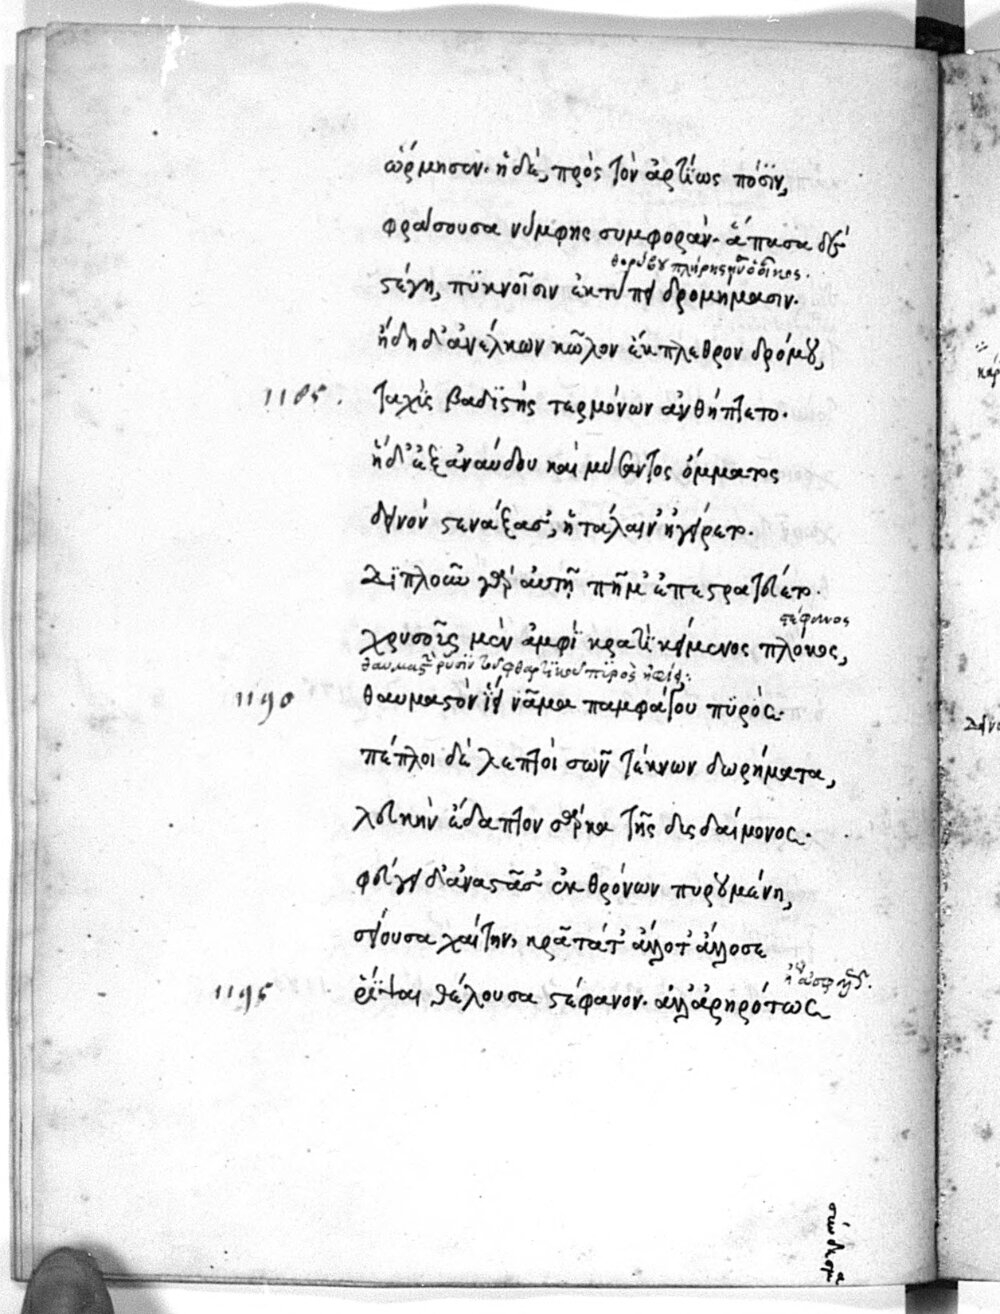 ὥρμησεν· ἡ δὲ, πρὸς τὸν ἀρτίως πόσϊν,
φράσουσα νύμφης συμφοράν· ἅπασα δὲ
θορύβου πλήρης ἦν ὁ οἶκος.
στέγη, πϋκνοῖσιν ἐκτύπει δρομήμασιν·
ἤδη δ' ἀνέλκων κῶλον ἔκπλεθρον δρόμου,
1185. ταχὺς βαδϊστὴς τερμόνων ἀνθήπτετο·
ἡ δ' ἐξ ἀναύδου καὶ μύσαντος ὄμματος
δεινὸν στενάξασ', ἡ τάλαιν' ἠγείρετο·
διπλοῦν γὰρ αὐτῇ πῆμ' ἐπεστρατεύετο·
στέφανος
χρυσοῦς μὲν ἀμφὶ κρατὶ κείμενος πλόκος,
1190 θαυμαστὸν ἵει νᾶμα παμφάγου πϋρός·
πέπλοι δὲ λεπτοὶ σῶν τέκνων δωρήματα,
λευκὴν ἔδαπτον σάρκα τῆς δυσδαίμονος·
φεύγει δ' ἀναστᾶσ' ἐκ θρόνων πυρουμένη,
σείουσα χαίτην, κρᾶτά τ' ἄλλοτ' ἄλλοσε
1195 ῥῖψαι θέλουσα στέφανον· ἀλλ' ἀρηρότως